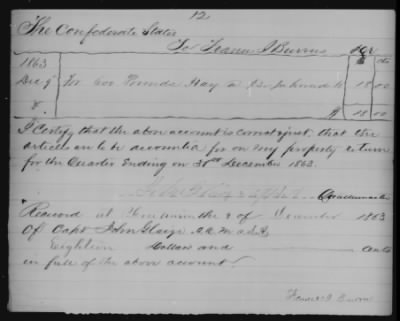 12
The Confederate States
To Francis J Burrus Dr
1863 $ cts
Dec 9 For 600 Pounds Hay 18 00
$ 18 00
I Certify that the above account is correct & just, that the
articles are to be accounted for on my property return
for the Quarter Ending on 31st December 1863.
Quartermaster
Received at the 9 of December 1863
Of Capt John A.Q.M.
Eighteen Dollars and cents
in full of the above account.
Francis J Burrus